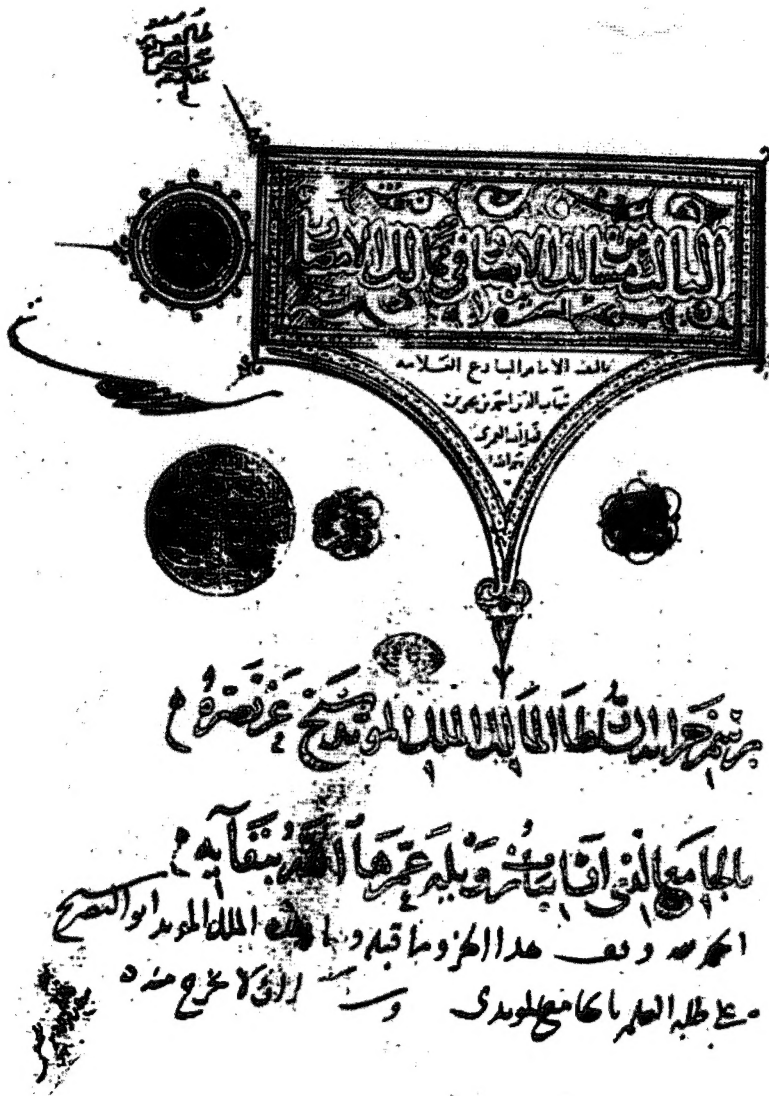 الثالث من مسالك الابصار في ممالك الامصار
تاليف الامام البارع العلامه
شهاب الدين احمد بن يحيى بن
فضل الله العمرى
برسم خزانة السلطان المالك الملك المويد شيخ عز نصره
بالجامع الذي انشا بباب زويله عمرها الله ببقآيه
الحمد لله وقف هذا الجزو وما قبله وما بعده الملك المويد ابو النصر شيخ
على طلبة العلم بالجامع المويدى وشرط ان لا يخرج منه